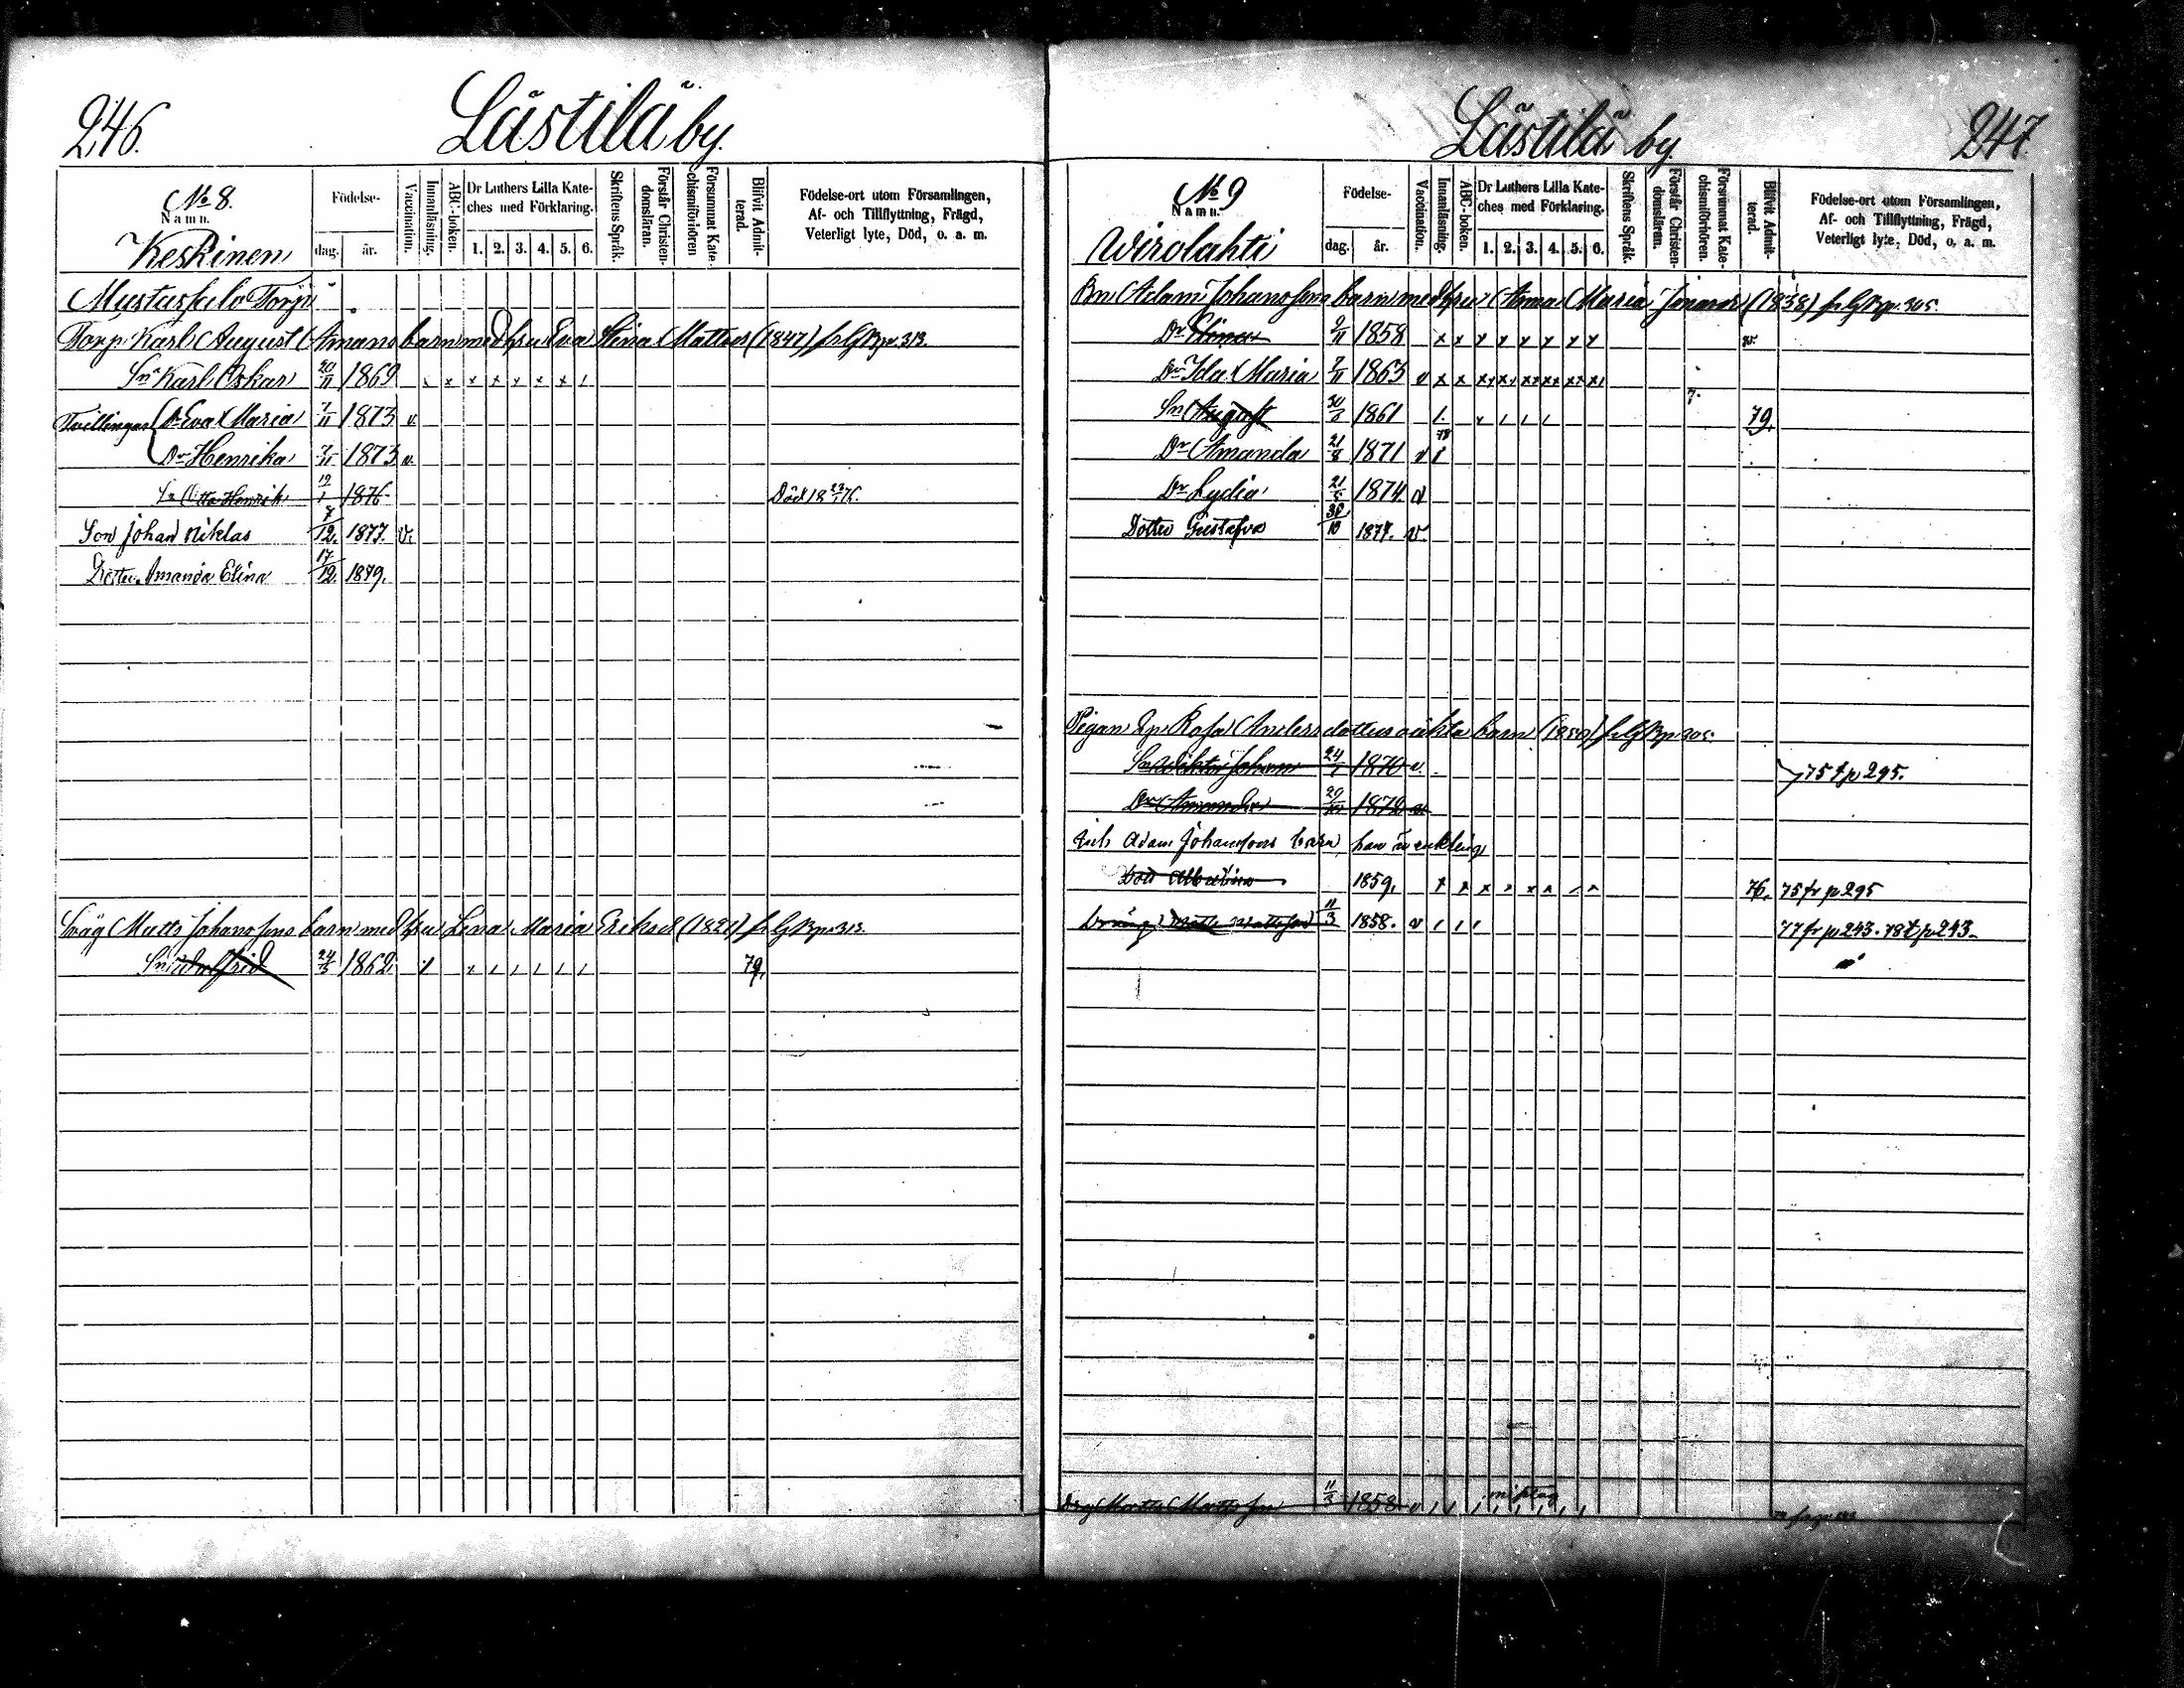 246.
Lästilä by.
№ 8.
Namn.
Keskinen
Födelse-
dag.
år.
Vaccination.
Innanläsning.
ABC-boken.
Dr Luthers Lilla Kate-
ches med Förklaring.
1. 2. 3. 4. 5. 6.
Skriftens Språk.
Förstår Christen-
domsläran.
Försummat Kate-
chismiförhören
Blifvit Admit-
terad.
Födelse-ort utom Församlingen,
Af- och Tillflyttning, Frägd,
Veterligt lyte, Död, o. a. m.
Mustasalo Torp
Torp. Karl August Amans barn med hru Eva Stina Mattsr (1847) fr Bp. 313.
Sn Karl Oskar 20/11 1869
Tvillingar Dr Eva Maria 7/11 1873 v.
Dr Henrika 7/11 1873 v.
Sn Otto Henrik 19/1 1876 Död 18 23/1 76.
Son Johan Niklas 7/12. 1877. v.
Dotter Amanda Elina 17/12. 1879.
Svåg Matts Johanssons barn med hru Lena Maria Eriksd (1821) fr Bp. 313.
Sn Walfrid 24/3 1862. 79.
Lästilä by
247.
№ 9
Namn.
Wirolahti
Födelse-
dag.
år.
Vaccination.
Innanläsning.
ABC-boken.
Dr Luthers Lilla Kate-
ches med Förklaring.
1. 2. 3. 4. 5. 6.
Skriftens Språk.
Förstår Christen-
domsläran.
Försummat Kate-
chismiförhören.
Blifvit Admit-
terad.
Födelse-ort utom Församlingen,
Af- och Tillflyttning, Frägd,
Veterligt lyte, Död, o, a. m.
Bn Adam Johanssons barn med hru Anna Maria (1838) fr Bp. 305.
Dr Stina 9/11 1858
Dr Ida Maria 7/11 1863 v
Sn August 1861 79.
Dr Amanda 21/8 1871 v
Dr Lydia 21/5 1874 v
Dotter Gustafva 30/10 1877. v.
Pigan Rosa Andersdotters oäkta barn fr Bp 305.
Sn Wiktor Johan 24/1 1870 v. 75 t p 295.
Dr Amanda 1872 v
Adam Johanssons barn, han är enkling
Dott Albertina 1859. 76. 75 fr p 295
Dräng Matts Mattsson 11/3 1858. v 77 fr p 243. 78 t p 243.
Drg Matts Mattsson 11/3 1858 v